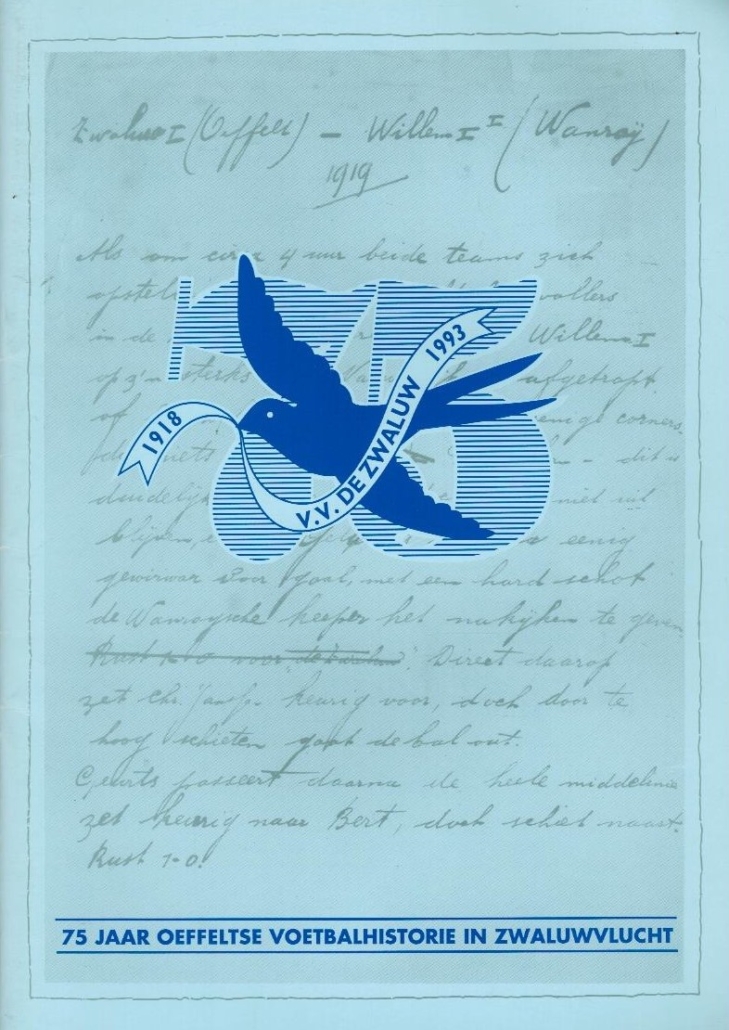 Zwaluw I (Oeffelt) – Willem II (Wanroij)
1919
Als om circa 4 uur beide teams zich
opstel
in de Willem I
op z'n sterks afgetrapt
of enige corners
niets – dit is
duidelijk niet uit
blijven, eenig
gewirwar voor goal, met een hard schot
de Wanroysche keeper het nakijken te geven
Rust 1-0 voor "de Zwaluw". Direct daarop
zet Chr. keurig voor, doch door te
hoog schieten gaat de bal out.
Geurts passeert daarna de heele middelinie
zet keurig naar Bert, doch schiet naast.
Rust 1-0.
1918
V.V. DE ZWALUW 1993
75
75 JAAR OEFFELTSE VOETBALHISTORIE IN ZWALUWVLUCHT